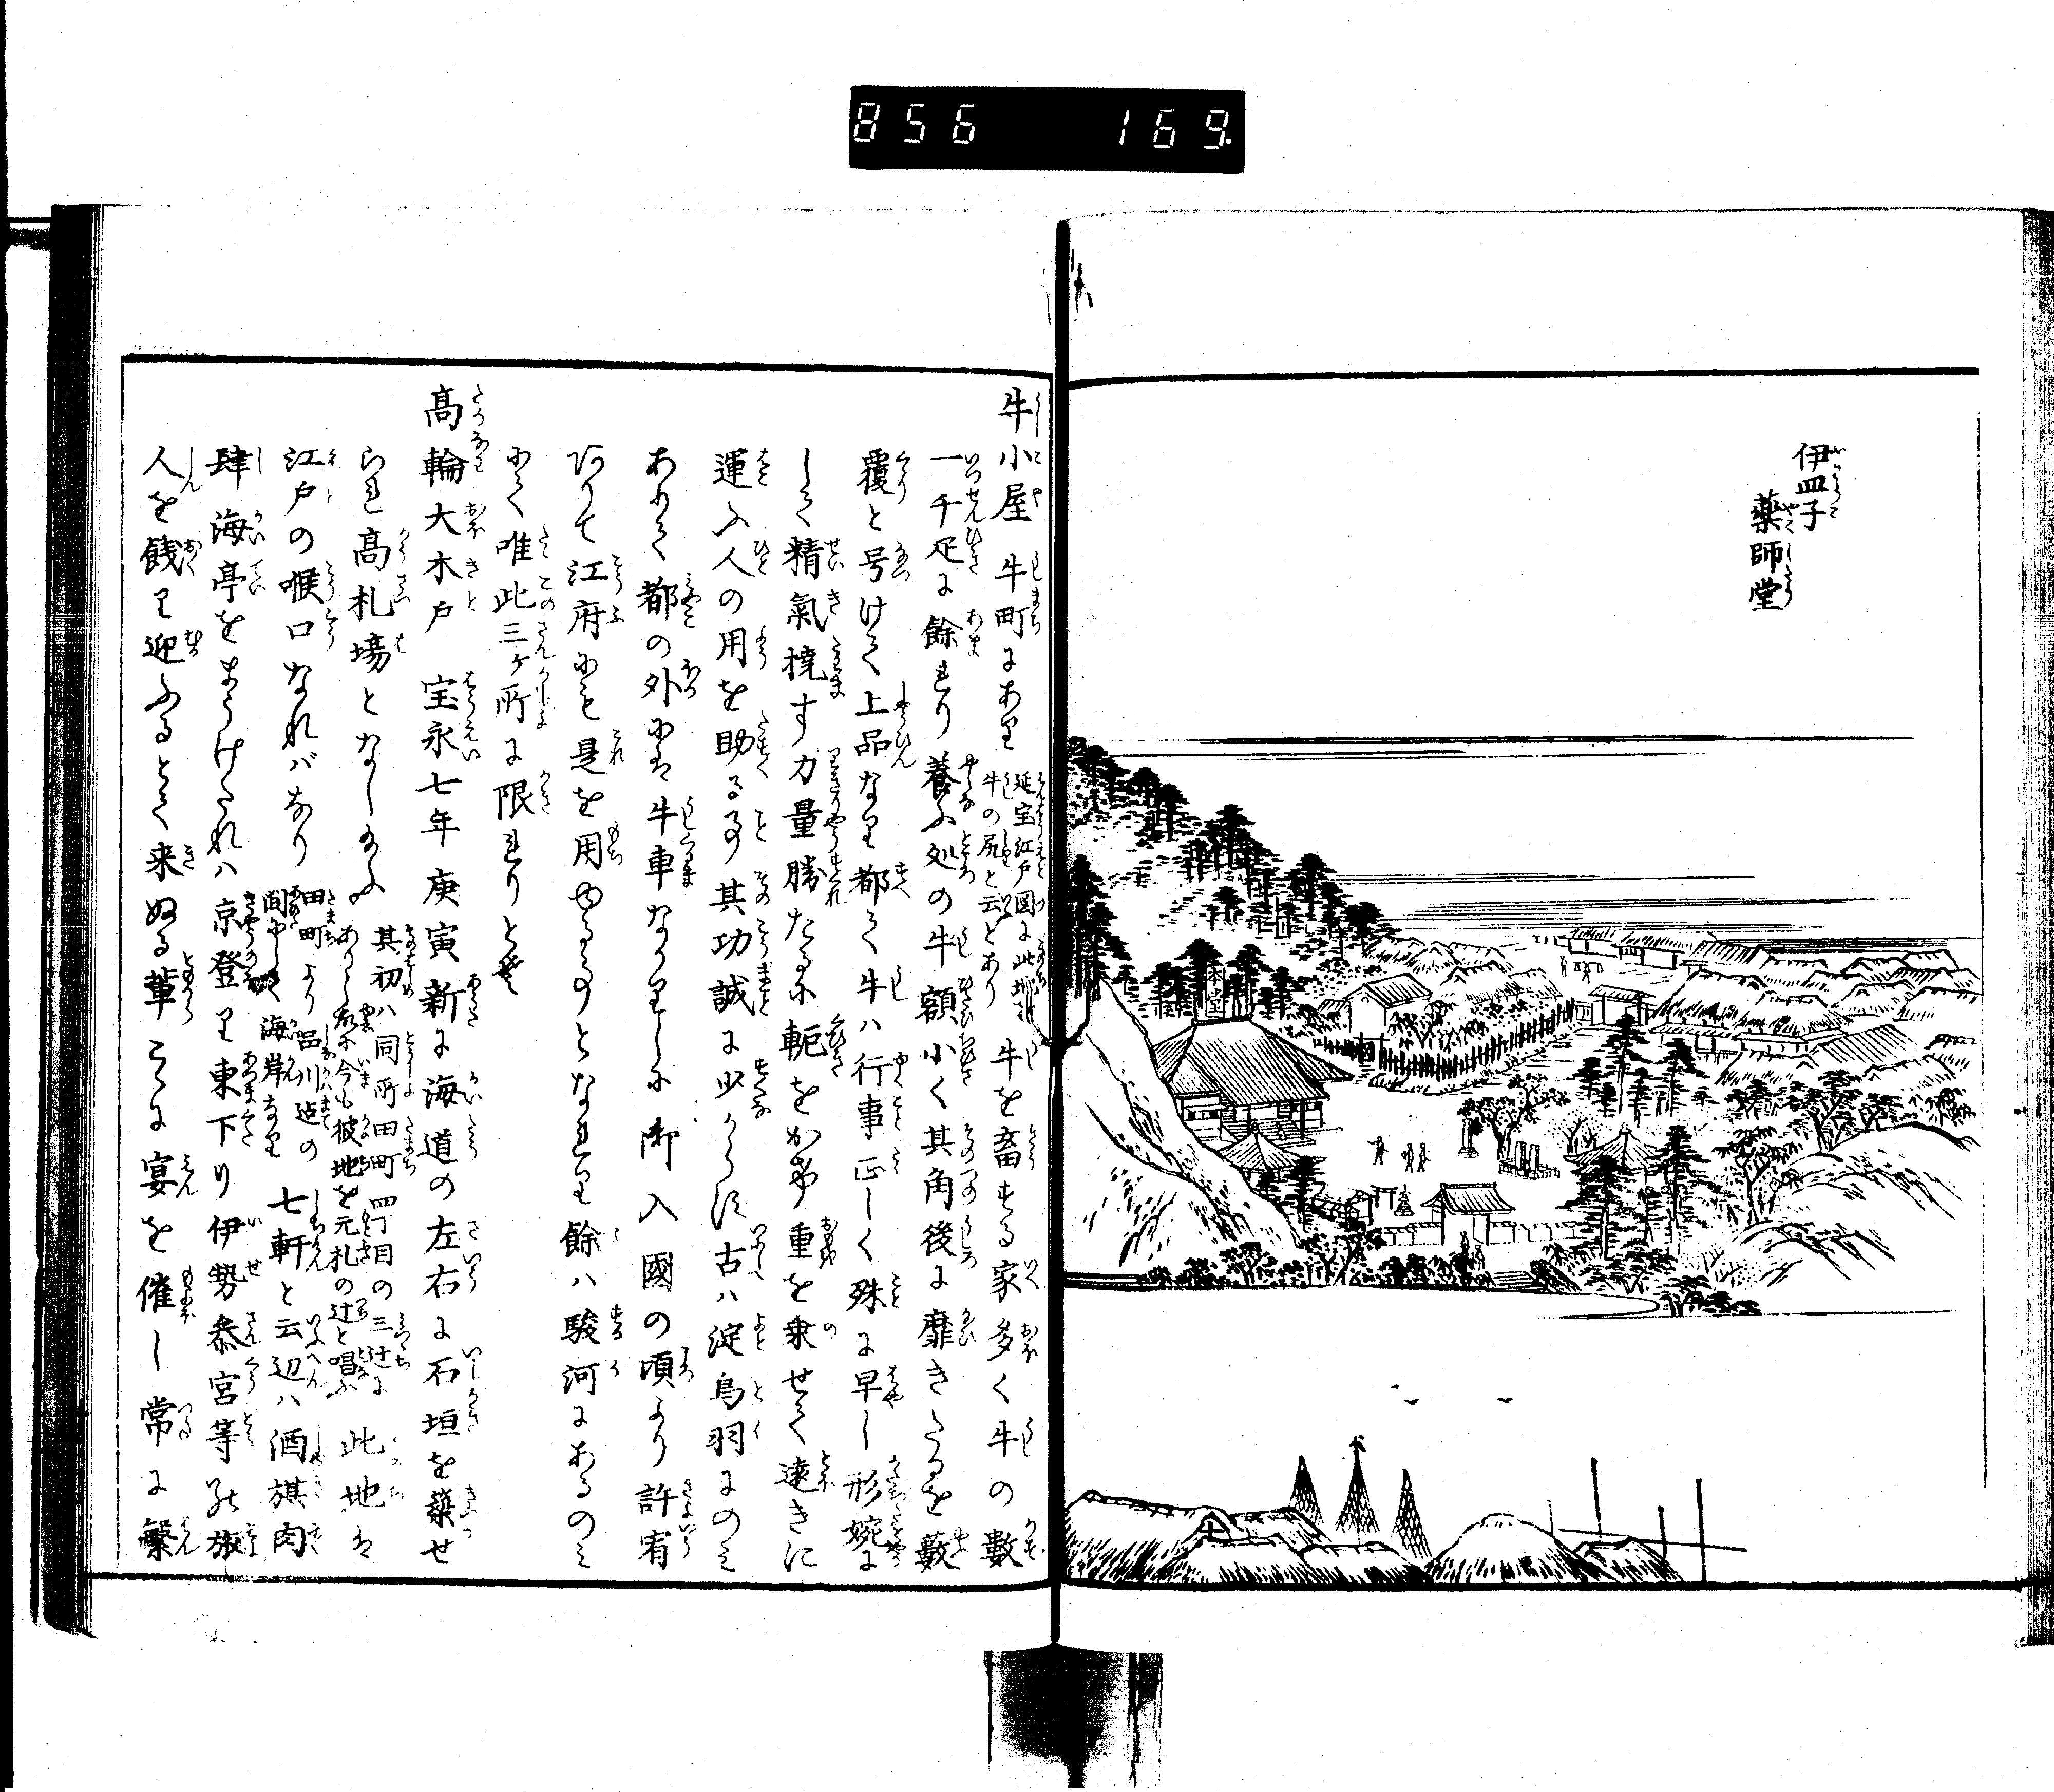 856 169
伊皿子
薬師堂
本堂
牛小屋 牛町にあり 延宝江戸図に此地を牛の尻と云とあり 牛を畜する家多く牛の数
一千疋に餘れり養ふ処の牛額小く其角後に靡きたるを藪
覆と号けて上品なり都て牛ハ行事正しく殊に早し形婉に
して精氣撓す力量勝たる故軛をかけ重を乗せて遠きに
運ふ人の用を助る事其功誠に少からす古ハ淀鳥羽にのミ
ありて都の外には牛車なかりしに御入國の頃より許宥
ありて江府にも是を用ゆる事となれり餘ハ駿河にあるのミ
にて唯此三ヶ所に限れりとぞ
高輪大木戸 宝永七年庚寅新に海道の左右に石垣を築せ
られ高札場となし給ふ 其初ハ同所田町四丁目の三辻にありし故に今も彼地を元札の辻と唱ふ 此地は
江戸の喉口なれバなり 田町より品川迄の間にして海岸なり 七軒と云辺ハ酒旗肉
肆海亭をまうけたれハ京登り東下り伊勢参宮等の旅
人を餞り迎ふるとて来ぬる輩こゝに宴を催し常に繁